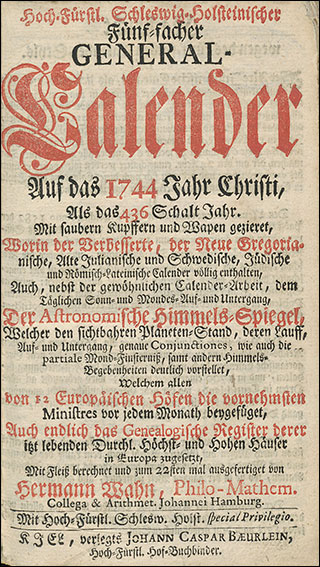 Hoch-Fürstl. Schleswig-Holsteinischer
Fünf-facher
GENERAL-
Calender
Auf das 1744 Jahr Christi,
Als das 436 Schalt Jahr.
Mit saubern Kupffern und Wapen gezieret,
Worin der Verbesserte, der Neue Gregoria-
nische, Alte Julianische und Schwedische, Jüdische
und Römisch-Lateinische Calender völlig enthalten,
Auch, nebst der gewöhnlichen Calender-Arbeit, dem
Täglichen Sonn- und Mondes-Auf- und Untergang,
Der Astronomische Himmels-Spiegel,
Welcher den sichtbahren Planeten-Stand, deren Lauff,
Auf- und Untergang, genaue Conjunctiones, wie auch die
partiale Mond-Finsterniß, samt andern Himmels-
Begebenheiten deutlich vorstellet,
Welchem allen
von 52 Europäischen Höfen die vornehmsten
Ministres vor jedem Monath beygefüget,
Auch endlich das Genealogische Register derer
itzt lebenden Durchl. Höchst- und Hohen Häuser
in Europa zugesetzt,
Mit Fleiß berechnet und zum 22sten mal ausgefertiget von
Hermann Wahn, Philo-Mathem.
Collega & Arithmet. Johannei Hamburg.
Mit Hoch-Fürstl. Schlesw. Holst. special Privilegio.
KIEL, verlegts JOHANN CASPAR BÆURLEIN,
Hoch-Fürstl. Hof-Buchbinder.